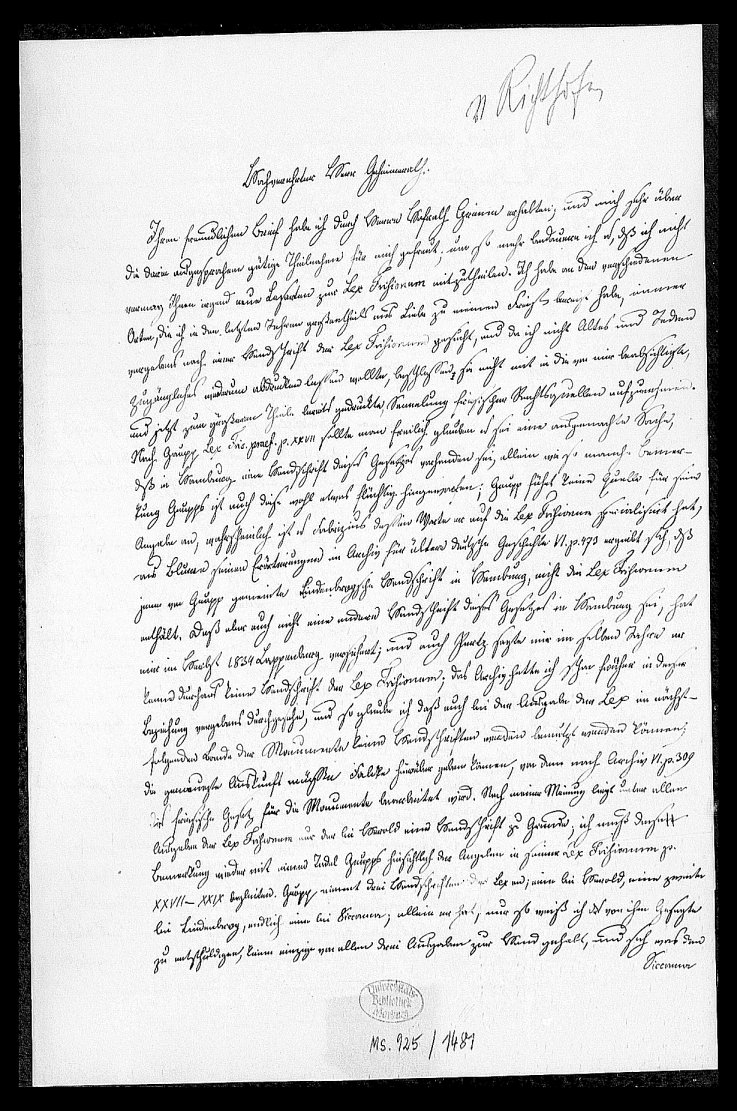 v Richthofen
Hochverehrter Herr Geheimerath.
Ihren freundlichen Brief habe ich durch Herrn Hofrath Grimm erhalten, und mich sehr über
die darin ausgesprochene gütige Theilnahme für mich gefreut, um so mehr bedauere ich es, daß ich nicht
vermag Ihnen irgend neue Lesarten zur Lex Frisionum mitzutheilen. Ich habe an den verschiedenen
Orten, die ich in den letzten Jahren großentheils aus Liebe zu meinen Friesen bereist habe, immer
vergebens nach einer Handschrift der Lex Frisionum gesucht, und da ich nicht Altes und Jedem
Zugängliches wiederum abdrucken lassen wollte, beschlossen, sie nicht mit in die von mir beabsichtigte,
und jetzt zum größeren Theile bereits gedruckte Sammlung friesischer Rechtsquellen aufzunehmen.
Nach Gaupp Lex Fris. praef. p. XXVII sollte man freilich glauben es sei eine ausgemachte Sache,
daß in Hamburg eine Handschrift dieses Gesetzes vorhanden sei, allein wie so manche Bemer-
kung Gaupps ist auch diese wohl etwas flüchtig hingeworfen; Gaupp führt keine Quelle für seine
Angabe an, wahrscheinlich ist es Fabrizius dessen Worte er auf die Lex Frisionum specialisirt hat,
aus Blume seinen Erörterungen im Archiv für ältere deutsche Geschichte VI. p. 473 ergiebt sich, daß
jene von Gaupp gemeinte Lindenbrogsche Handschrift in Hamburg, nicht die Lex Frisionum
enthält. Daß aber auch nicht eine andere Handschrift dieses Gesetzes in Hamburg sei, hat
mir im Herbst 1834 Lappenberg versichert; und auch Pertz sagte mir im selben Jahre er
kenne durchaus keine Handschrift der Lex Frisionum; das Archiv hatte ich schon früher in dieser
Beziehung vergebens durchgesehn, und so glaube ich daß auch bei der Ausgabe der Lex im nächst-
folgenden Bande der Monumente keine Handschriften werden benutzt werden können;
die genaueste Auskunft müßte Falcke hierüber geben können, von dem nach Archiv VI. p. 309
das friesische Gesetz für die Monumente bearbeitet wird. Nach meiner Meinung liegt unter allen
Ausgaben der Lex Frisionum nur der bei Herold eine Handschrift zu Grunde; ich muß diese
Bemerkung wieder mit einem Tadel Gaupps hinsichtlich der Angaben in seiner Lex Frisionum p.
XXVII – XXIX begleiten. Gaupp nimmt drei Handschriften der Lex an; eine bei Herold, eine zweite
bei Lindenbrog, endlich eine bei Siccama; allein er hat, nur so weiß ich das von ihm Gesagte
zu entschuldigen, keine einzige von allen drei Ausgaben zur Hand gehabt, und sich was den
Siccama
Universitäts-
Bibliothek
Marburg
Ms. 925 / 1481